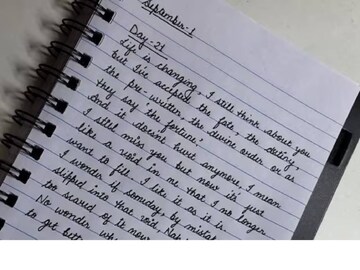 September-1
Day-21
Life is changing, I still think about you
but I've accepted the fate, the destiny,
the pre-written, the divine order or as
they say 'the fortice'
And it doesn't hurt anymore, I mean
I still miss you but now it's just
like a void in me that I no longer
want to fill, I like it as it is.
I wonder if someday, by mistak
slipped into that void,
too scared of it now
No wonder wh
to get bett